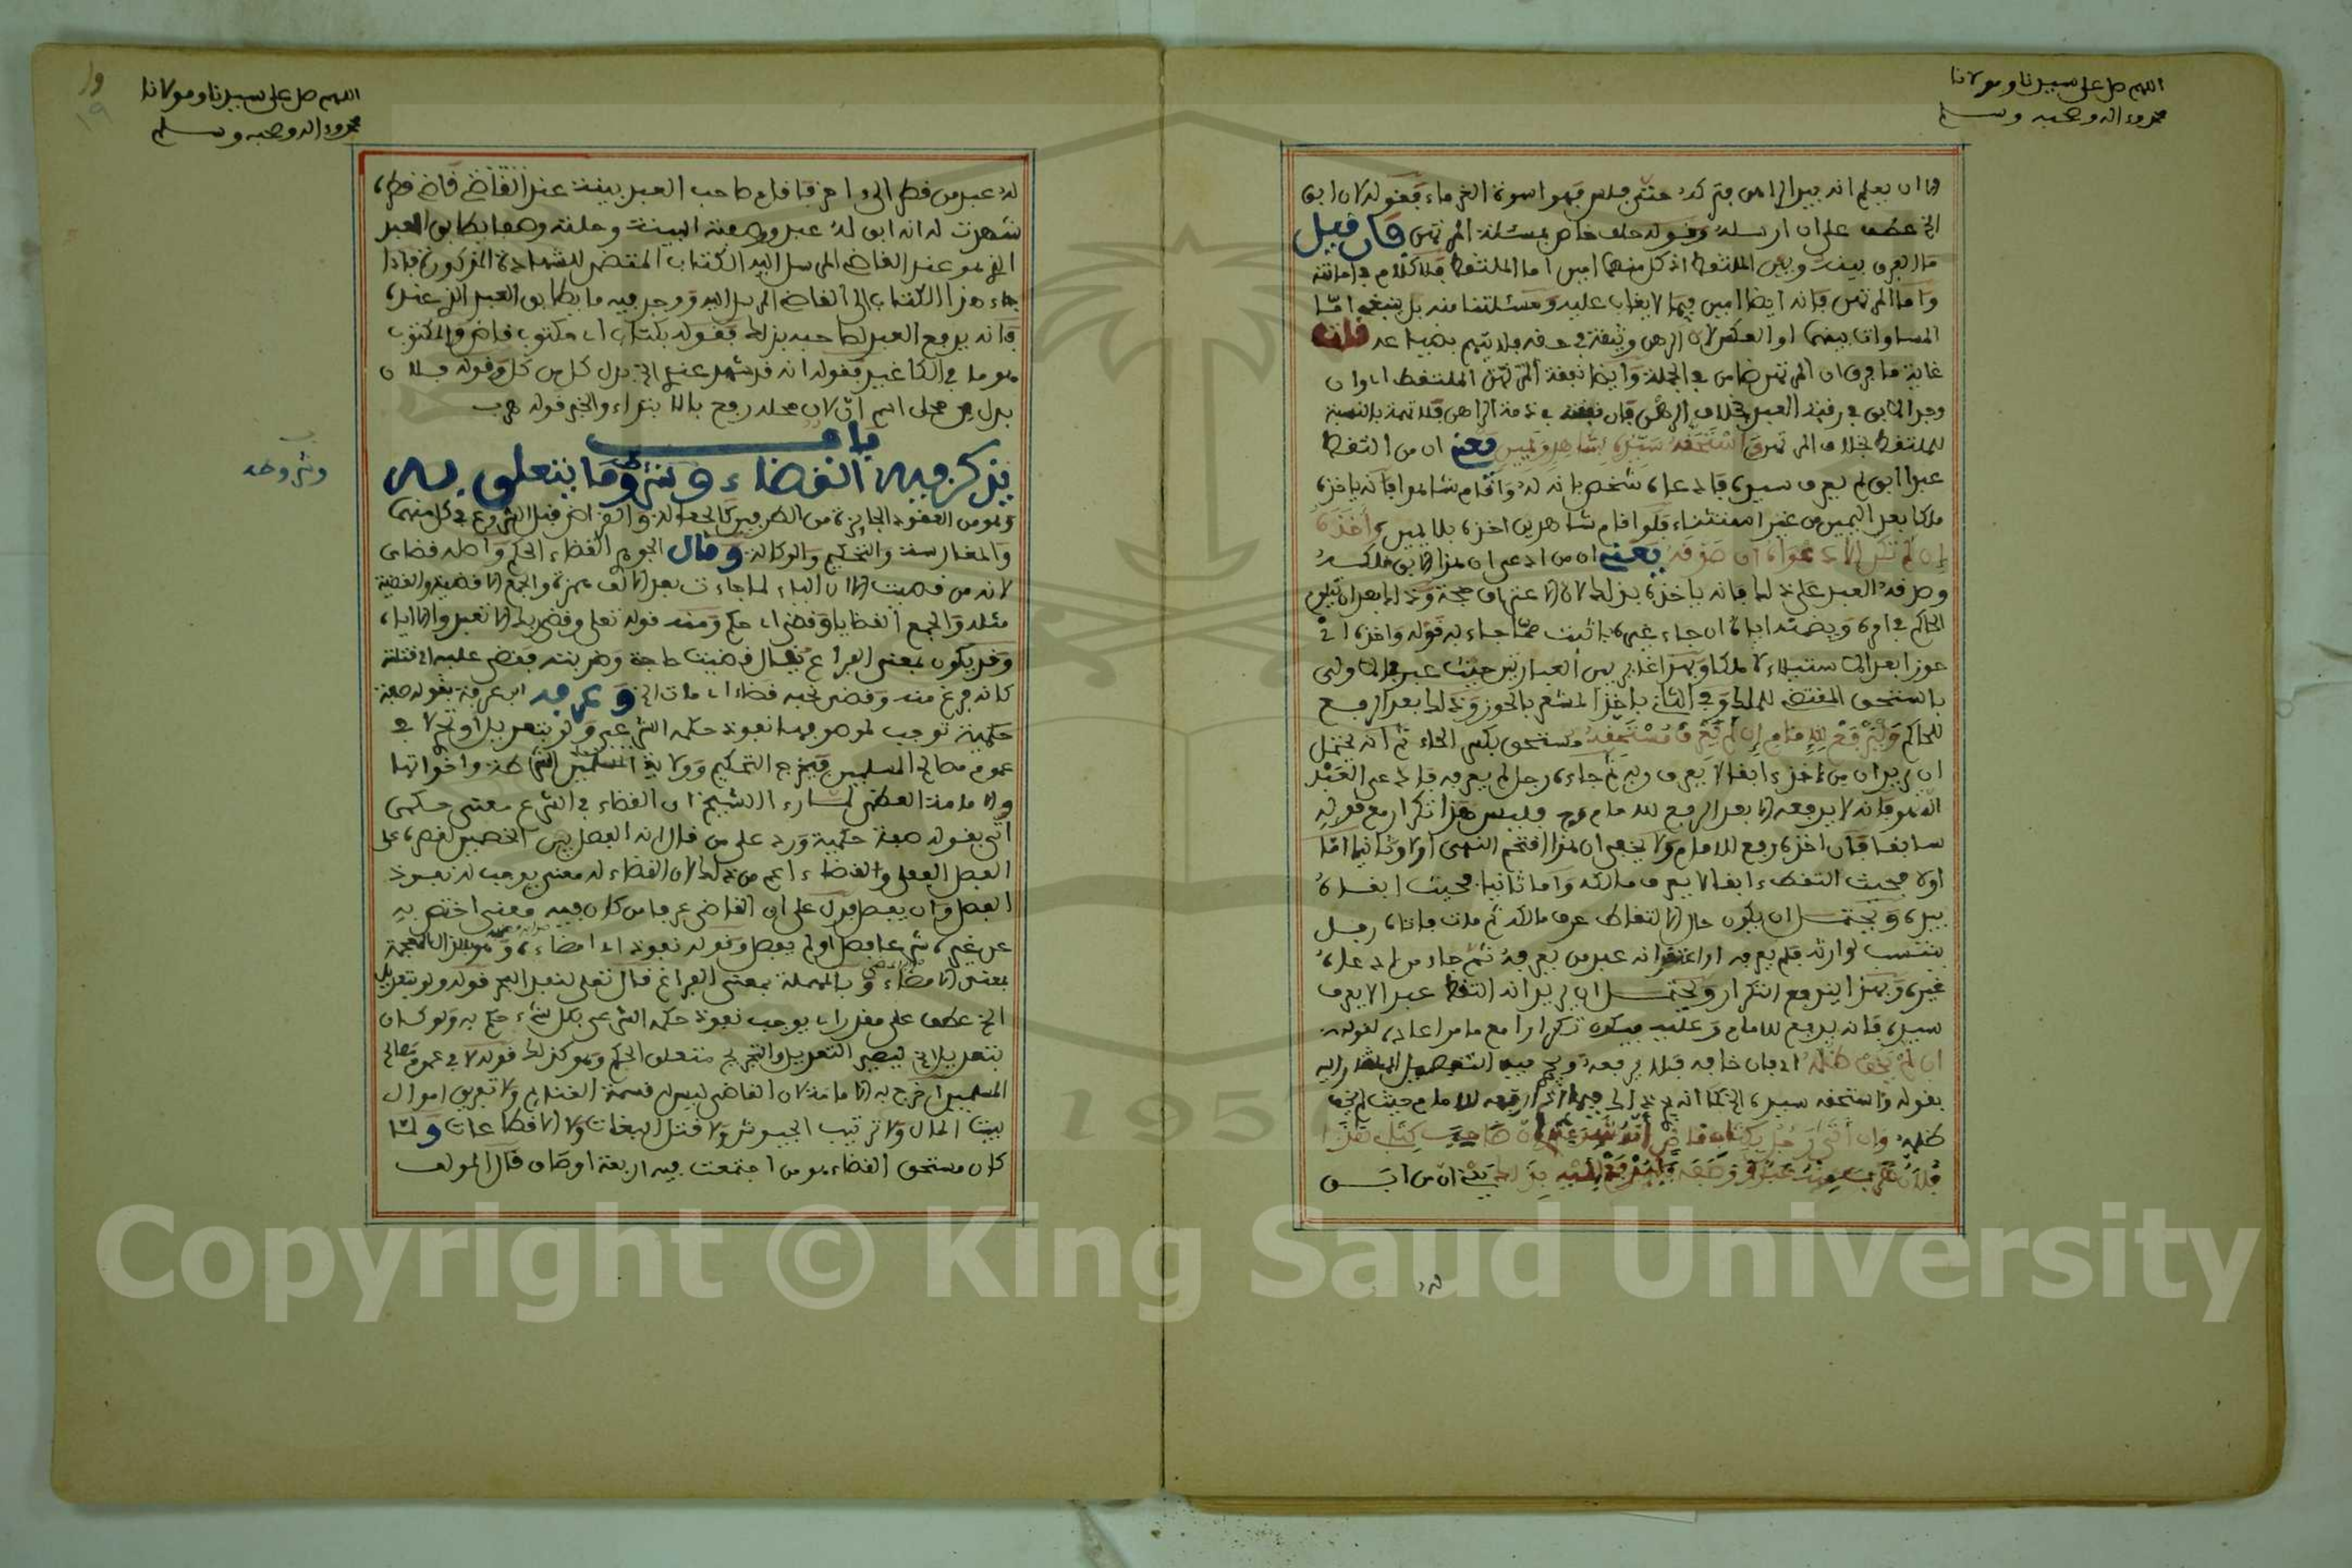 اللهم صل على سيدنا ومولانا
محمد وءاله وصحبه وسلم
الا ان يعلم انه بيد الراهن فتركه حتى فلس فهو اسوة الغرماء فقوله لان ابق
الخ عطف على ان ارسله وقوله حلف خاص بمسئلة المرتهن فان قيل
ما الفرق بينه وبين الملتقط اذ كل منهما امين اما الملتقط فلا كلام في امانته
واما المرتهن فانه ايضا امين فيما لا يغاب عليه ومسئلتنا منه بل ينبغي اما
المساواة بينهما او العكس لان الرهن وثيقة في حقه فلا يتهم بضياعه قلت
غاية ما فرق ان المرتهن ضامن في الجملة وايضا نفقة الملتقط اي وان
وجد الابق في رقبة العبد بخلاف الرهن فان نفقته في ذمة الراهن فلا تهمة بالنسبة
للملتقط بخلاف المرتهن واستحقه سيده بشاهد ويمين يعني ان من التقط
عبدا ابق لم يعرف سيده فادعاه شخص بانه له واقام شاهدا فانه ياخذه
ملكا بعد اليمين من غير استيناء فلو اقام شاهدين اخذه بلا يمين واخذه
ان لم تكن الا دعواه ان صدقه يعني ان من ادعى ان هذا الابق ملكه
وصدقه العبد على ذلك فانه ياخذه بذلك لان الاعتراف حجة وذلك بعد ان يتلوم
الحاكم في امره ويضمنه اياه ان جاء غيره باثبت مما جاء به قوله واخذه اي
حوزا بعد الاستيناء لا ملكا وبهذا غاير بين العبارتين حيث عبر في الاولى
باستحق المقتضي للملك وفي الثاني باخذ المشعر بالحوز وذلك بعد الرفع
للحاكم وليرفع للامام ان لم يعرف مستحقه مستحق بكسر الحاء ثم انه يحتمل
ان يريد ان من اخذ ءابقا لا يعرف ربه ثم جاءه رجل لم يعرفه فادعى العبد
انه له فانه لا يدفعه الا بعد الرفع للامام وليس هذا تكرار مع قوله
سابقا فان اخذه رفع للامام ولا يخفى ان هذا اقتحم النهى اولا وثانيا اما
اولا فحيث التقط ءابقا لا يعرف مالكه واما ثانيا فحيث ابقاه
بيده ويحتمل ان يكون حال الالتقاط عرف مالكه ثم مات فاتاه رجل
ينتسب لوارثه فلم يعرفه او اعتقد انه عبد من يعرفه ثم جاء من ادعاه
غيره وبهذا يندفع التكرار ويحتمل ان يريد انه التقط عبدا لا يعرف
سيده فانه يرفع للامام وعليه فيكون تكرارا مع ما مر اعاده لقوله
ان لم يخف ظلمه اي فان خافه فلا يرفعه ويجري فيه التفصيل المشار اليه
بقوله واستحقه سيده الخ كما انه يجري ذلك فيما اذا رفعه للامام حيث لم يخف
ظلمه وان اتى رجل بكتاب قاض انه قد شهد عندي ان صاحب كتابي هذا
فلان هرب منه عبد ووصفه فليدفع اليه بذلك يعني ان من ابق
له
اللهم صل على سيدنا ومولانا
محمد وءاله وصحبه وسلم
١٩
له عبد من قطر الى ءاخر فاقام صاحب العبد بينة عند القاضي قاضي قطره
شهدت له انه ابق له عبد ووصفته البينة وحلته وصفا يطابق العبد
الذي هو عند القاضي المرسل اليه الكتاب المقتضي للشهادة المذكورة فاذا
جاء هذا الكتاب الى القاضي المرسل اليه ووجد فيه ما يطابق العبد الذي عنده
فانه يدفع العبد لصاحبه بذلك فقوله بكتاب اي مكتوب قاض والمكتوب
هو ما في الكاغيد فقوله انه قد شهد عندي الخ بدل كل من كل وقوله فلان
بدل من محل اسم ان لان محله رفع بالابتداء والخبر قوله هرب
باب
يذكر فيه القضاء وشروطه وما يتعلق به
وشروطه
وهو من العقود الجايزة من الطرفين كالجعالة والقراض قبل الشروع في كل منهما
والمغارسة والتحكيم والوكالة وقال الجوهري القضاء الحكم واصله قضاي
لانه من قضيت الا ان الياء لما جاءت بعد الالف همزت والجمع الاقضية والقضية
مثله والجمع القضايا وقضى اي حكم ومنه قوله تعلى وقضى ربك الا تعبدوا الا اياه
وقد يكون بمعنى الفراغ يقال قضيت حاجة وضربته فقضى عليه اي قتله
كانه فرغ منه وقضى نحبه قضاء اي مات الخ وعرفه ابن عرفة بقوله صفة
حكمية توجب لموصوفها نفوذ حكمه الشرعي ولو بتعديل او تجريح لا في
عموم مصالح المسلمين فيخرج التحكيم وولاية الشرطة واخواتها
والامامة العظمى اشار الشيخ ان القضاء في الشرع معنى حكمي
اتى بقوله صفة حكمية ورد على من قال انه الفصل بين الخصمين لقصره على
الفصل الفعلي والقضاء اعم من ذلك لان القضاء له معنى يوجب له نفوذ
الفصل وان يفصل فدل على ان القاضي عرفا من كان فيه معنى اختص به
عن غيره شرعا فصل او لم يفصل وقوله نفوذ اي امضاء وهو بالذال المعجمة
بمعنى الامضاء وبالمهملة بمعنى الفراغ قال تعلى لنفد البحر قوله ولو بتعديل
الخ عطف على مقدر اي يوجب نفوذ حكمه الشرعي بكل شيء حكم به ولو كان
بتعديل الخ ليصير التعديل والتجريح متعلق الحكم وهو كذلك قوله لا في عموم مصالح
المسلمين اخرج به الامامة لان القاضي ليس له قسمة الغنايم ولا تفريق اموال
بيت المال ولا ترتيب الجيوش ولا قتل البغات ولا الاقطاعات ولما
كان مستحق القضاء هو من اجتمعت فيه اربعة اوصاف قال المولف
Copyright © King Saud University
1957